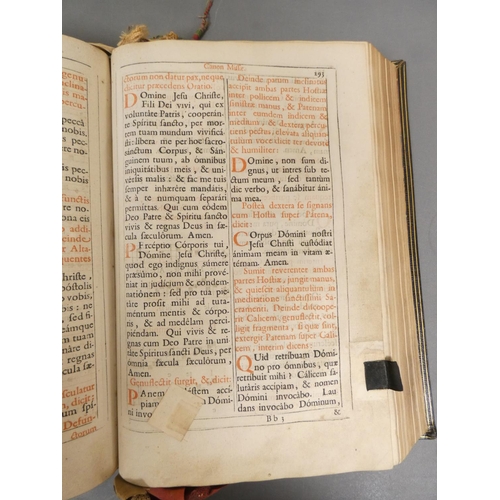 Canon Missæ.
193
ctorum non datur pax, neque
dicitur præcedens Oratio.
Domine Jesu Christe,
Fili Dei vivi, qui ex
voluntáte Patris, cooperán-
te Spíritu sancto, per mor-
tem tuam mundum vivificá-
sti: líbera me per hoc sacro-
sánctum Corpus, & Sán-
guinem tuum, ab ómnibus
iniquitátibus meis, & uni-
vérsis malis: & fac me tuis
semper inhærére mandátis,
& à te numquam separári
permíttas. Qui cum eódem
Deo Patre & Spíritu sancto
vivis & regnas Deus in sæ-
cula sæculórum. Amen.
Percéptio Córporis tui,
Dómine Jesu Christe,
quod ego indígnus súmere
præsúmo, non mihi provéni-
at in judícium & condem-
natiónem: sed pro tua pie-
táte prosit mihi ad tuta-
méntum mentis & córpo-
ris, & ad medélam perci-
piéndam. Qui vivis & re-
gnas cum Deo Patre in uni-
táte Spíritus sancti Deus, per
ómnia sæcula sæculórum.
Amen.
Genuflectit, surgit, & dicit:
Panem cæléstem acci-
piam Dómi-
ni invo
Deinde parum inclinatus
accipit ambas partes Hostiæ
inter pollicem & indicem
sinistræ manus, & Patenam
inter eumdem indicem
& dextera percu-
tiens pectus, elevata aliquan-
tulum voce dicit ter devote
& humiliter:
Domine, non sum di-
gnus, ut intres sub te-
ctum meum, sed tantùm
dic verbo, & sanábitur áni-
ma mea.
Postea dextera se signans
cum Hostia super Patena,
dicit:
Corpus Dómini nostri
Jesu Christi custódiat
ánimam meam in vitam æ-
térnam. Amen.
Sumit reverenter ambas
partes Hostiæ, jungit manus,
& quiescit aliquantulum in
meditatione sanctissimi Sa-
cramenti. Deinde discoope-
rit Calicem, genuflectit, col-
ligit fragmenta, si quæ sint,
extergit Patenam super Ca-
licem, interim dicens:
Quid retríbuam Dómi-
no pro ómnibus, quæ
retríbuit mihi? Cálicem sa-
lutáris accípiam, & nomen
Dómini invocábo. Lau-
dans invocábo Dóminum,
Bb 3
&